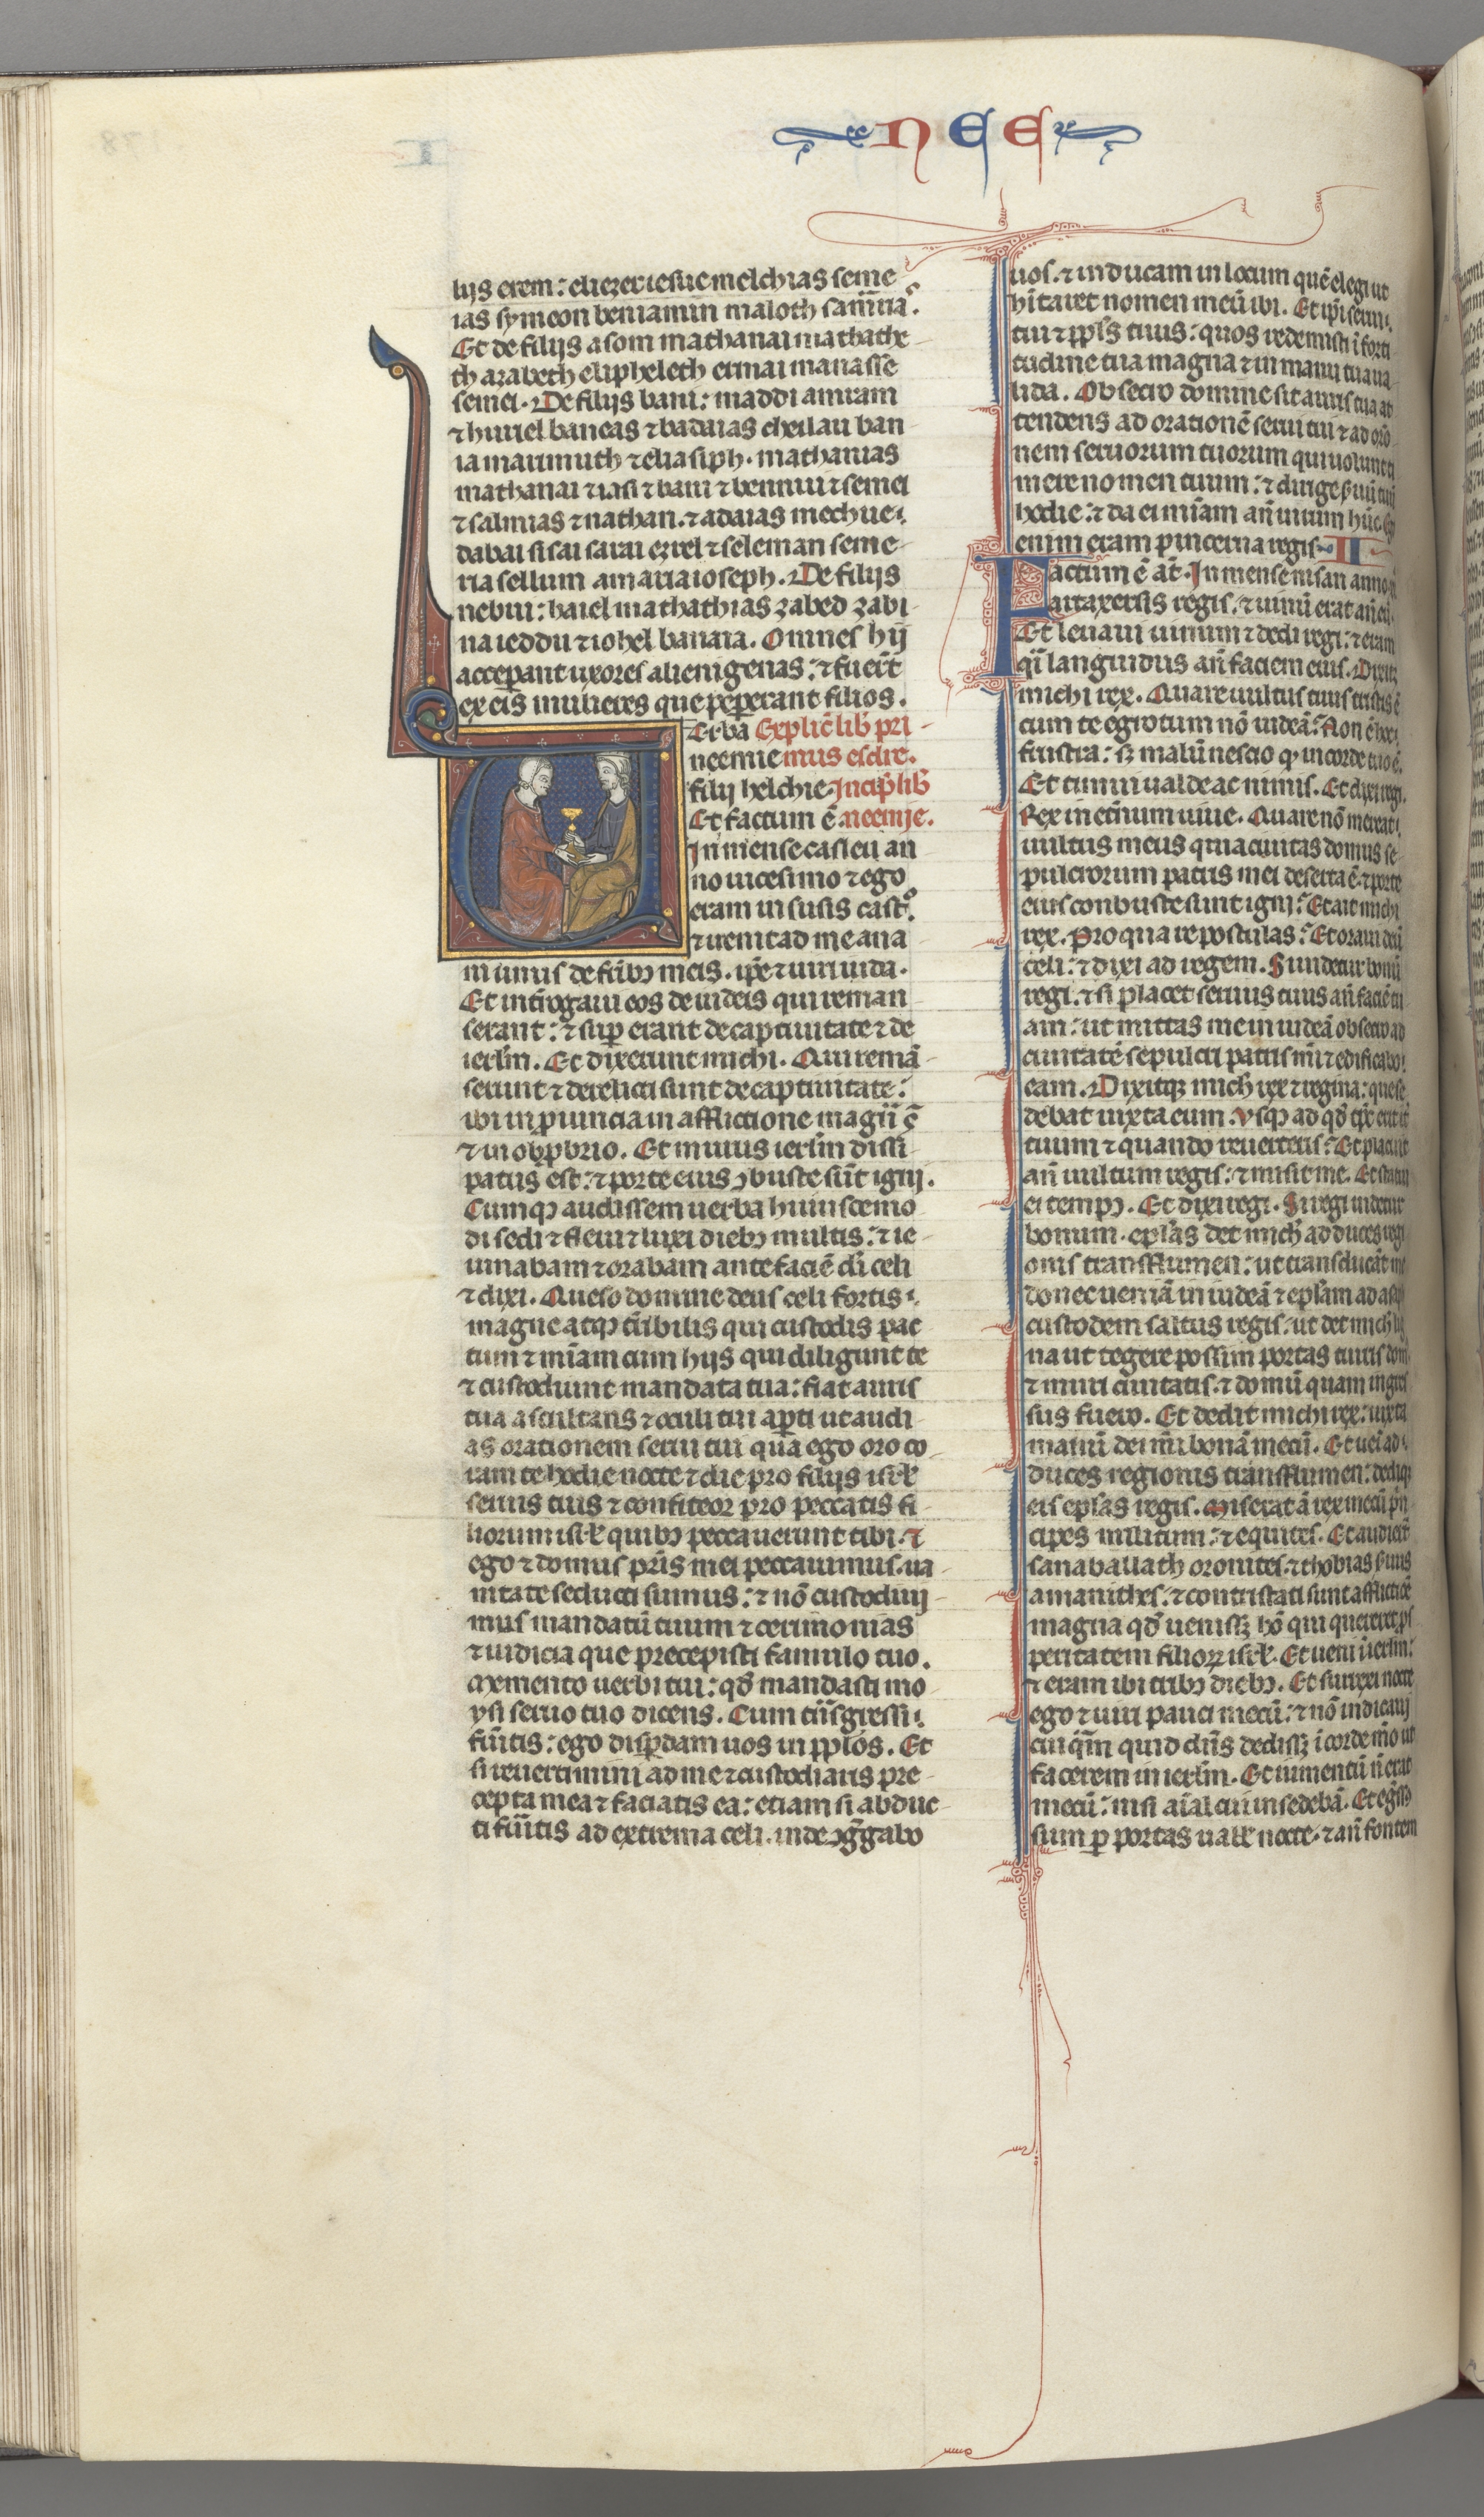 NEE
liis erem: eliezer iesue melchias seme
ias symeon beniamin maloth samria.
Et de filijs asom mathanai mathathe
th azabeth eliphelech ermai manasse
semei. De filijs bani: maddi amram
⁊ huriel baneas ⁊ badaias cheilau ban
ia marimuth ⁊ eliasiph. mathanias
mathanai ⁊ iasi ⁊ bani ⁊ bennui ⁊ semei
⁊ salmias ⁊ nathan. ⁊ adaias mechne
dabai sisai sarai ezrel ⁊ seleman seme
ria sellum amaria ioseph. De filijs
nebui: haiel mathathias zabed zabi
na ieddu ⁊ iohel banaia. Omnes hij
accep̃ant uxores alienigenas: ⁊ fuerũt
ex eis mulieres que pepererant filios.
Erba Explic̃ lib̃ pri
neemie mus esdre.
filij helchie. Incip̃ lib̃
Et factum ẽ neemie.
In mense casleu an
no uicesimo ⁊ ego
eram in susis castro.
⁊ uenit ad me ana
ni unus de fr̃ibꝫ meis. ip̃e ⁊ uiri iuda.
Et int̃rogaui eos de iudeis qui reman
serant: ⁊ suꝑ erant de captiuitate ⁊ de
ierl̃m. Et dixerunt michi. Qui remã
serunt ⁊ derelicti sunt de captiuitate:
ibi in ꝓuincia in afflictione magñ ẽ
⁊ in obꝓbrio. Et murus ierl̃m dissi
patus est: ⁊ porte eius ꝯbuste sũt ignj.
Cumqꝫ audissem uerba huiuscemo
di sedi ⁊ fleui ⁊ luxi diebꝫ multis: ⁊ ie
iunabam ⁊ orabam ante faciẽ di celi
⁊ dixi. Queso domine deus celi fortis
magne atqꝫ t̃ribilis qui custodis pac
tum ⁊ mĩam cum hijs qui diligunt te
⁊ custodiunt mandata tua: fiat auris
tua ascultans ⁊ oculi tui apti ut audi
as orationem serui tui quã ego oro co
ram te hodie nocte ⁊ die pro filijs isrl̃
seruis tuis ⁊ confiteor pro peccatis fi
liorum isrl̃ quibꝫ peccauerunt tibi. ⁊
ego ⁊ domus pr̃is mei peccauimus. ua
nitate seducti sumus: ⁊ nõ custodiuj
mus mandatũ tuum ⁊ cerimonias
⁊ iudicia que precepisti famulo tuo.
Memento uerbi tui: qd̃ mandasti mo
ysi seruo tuo dicens. Cum tñsgressi
fũitis: ego disꝑdam uos in pplõs. Et
si reuertimini ad me ⁊ custodiatis pre
cepta mea ⁊ faciatis ea: etiam si abduc
ti fũitis ad extrema celi. inde ꝯg̃gabo
uos. ⁊ inducam in locum quẽ elegi ut
hĩtaret nomen meũ ibi. Et ip̃i serui
tui ⁊ ppl̃s tuus: quos redemisti ĩ forti
tudine tua magna ⁊ in manu tua ua
lida. Obsecro domine sit auris tua at
tendens ad orationẽ serui tui ⁊ ad orõ
nem seruorum tuorum qui uolunt ti
mere nomen tuum: ⁊ dirige
hodie: ⁊ da ei mĩam añ uirum
enim eram pincerna regis. II
Factum ẽ at̃. In mense nisan anno
artaxersis regis. ⁊ uinũ erat añ eũ.
Et leuaui uinum ⁊ dedi regi: ⁊ eram
q̃i languidus añ faciem eius. Dixitqꝫ
michi rex. Quare uultus tuus tristis ẽ
cum te egrotum nõ uideã: Non ẽ hoc
frustra: sꝫ malũ nescio qꝫ in corde tuo ẽ.
Et timui ualde ac nimis. Et dixi regi.
Rex in et̃num uiue. Quare nõ mereat
uultus meus quia ciuitas domus se
pulcrorum patris mei deserta ẽ ⁊ porte
eius conbuste sunt ignj: Et ait michi
rex. Pro qua re postulas: Et oraui deũ
celi: ⁊ dixi ad regem. Si uidetur bonũ
regi. ⁊ si placet seruus tuus añ faciẽ tu
am: ut mittas me in iudeã obsecro ad
ciuitatẽ sepulcri patris mĩ ⁊ edificabo
eam. Dixitqꝫ mich rex ⁊ regina: que se
debat iuxta eum. Vsqꝫ ad qd̃ tp̃r erit it̃
tuum ⁊ quando reuerteris: Et placuit
añ uultum regis: ⁊ misit me. Et statui
ei tempꝫ. Et dixi regi. Si regi uidetur
bonum. epl̃as det mich ad duces regi
onis transflumen: ut transducãt me
donec ueniã in iudeã ⁊ epl̃am ad asaph
custodem saltus regis: ut det mich lig
na ut tegere possim portas turris dom
⁊ muri ciuitatis. ⁊ domũ quam ingres
sus fuero. Et dedit michi rex: iuxta
manũ dei mĩ bonã mecũ. Et ueñ ad
duces regionis transflumen: dediqꝫ
eis epl̃as regis. Miserat ã rex mecũ pñ
cipes militum: ⁊ equites. Et audierũt
sanaballath oronites. ⁊ thobias s̃uus
amanithes. ⁊ contristati sunt afflictiõe
magna qd̃ uenissꝫ hõ qui quereret ꝓs
peritatem filioꝝ isrl̃. Et ueni ierl̃m:
⁊ eram ibi tribꝫ diebꝫ. Et surrexi nocte
ego ⁊ uiri pauci mecũ: ⁊ nõ indicauj
cuiq̃m quid dñs dedissꝫ ĩ corde mõ ut
facerem in ierl̃m. Et iumentũ ñ erat
mecũ: nisi aĩal cui insedebã. Et eg̃ssꝫ
sum ꝑ portas uall̃ nocte. ⁊ añ fontem